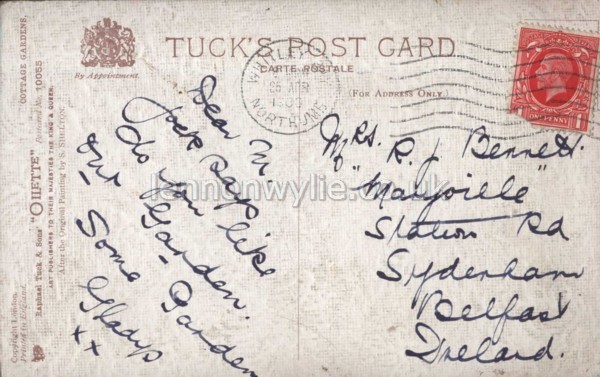 TUCK'S POST CARD
CARTE POSTALE
(FOR ADDRESS ONLY)
By Appointment.
COTTAGE GARDENS.
Raphael Tuck & Sons' "OILETTE" [Postcard No. 10055
ART PUBLISHERS TO THEIR MAJESTIES THE KING & QUEEN.
After the Original Painting by S. SHELTON.
Copyright London.
Printed in England.
25 APR
NORTHUMB
ONE PENNY
Dear M.
Jack says
do you like
our Garden.
- Some Garden
Gladys
xx
Mrs. R. J. Bennett.
"Maryville"
Station Rd
Sydenham
Belfast
Ireland.
lennonwylie.co.uk